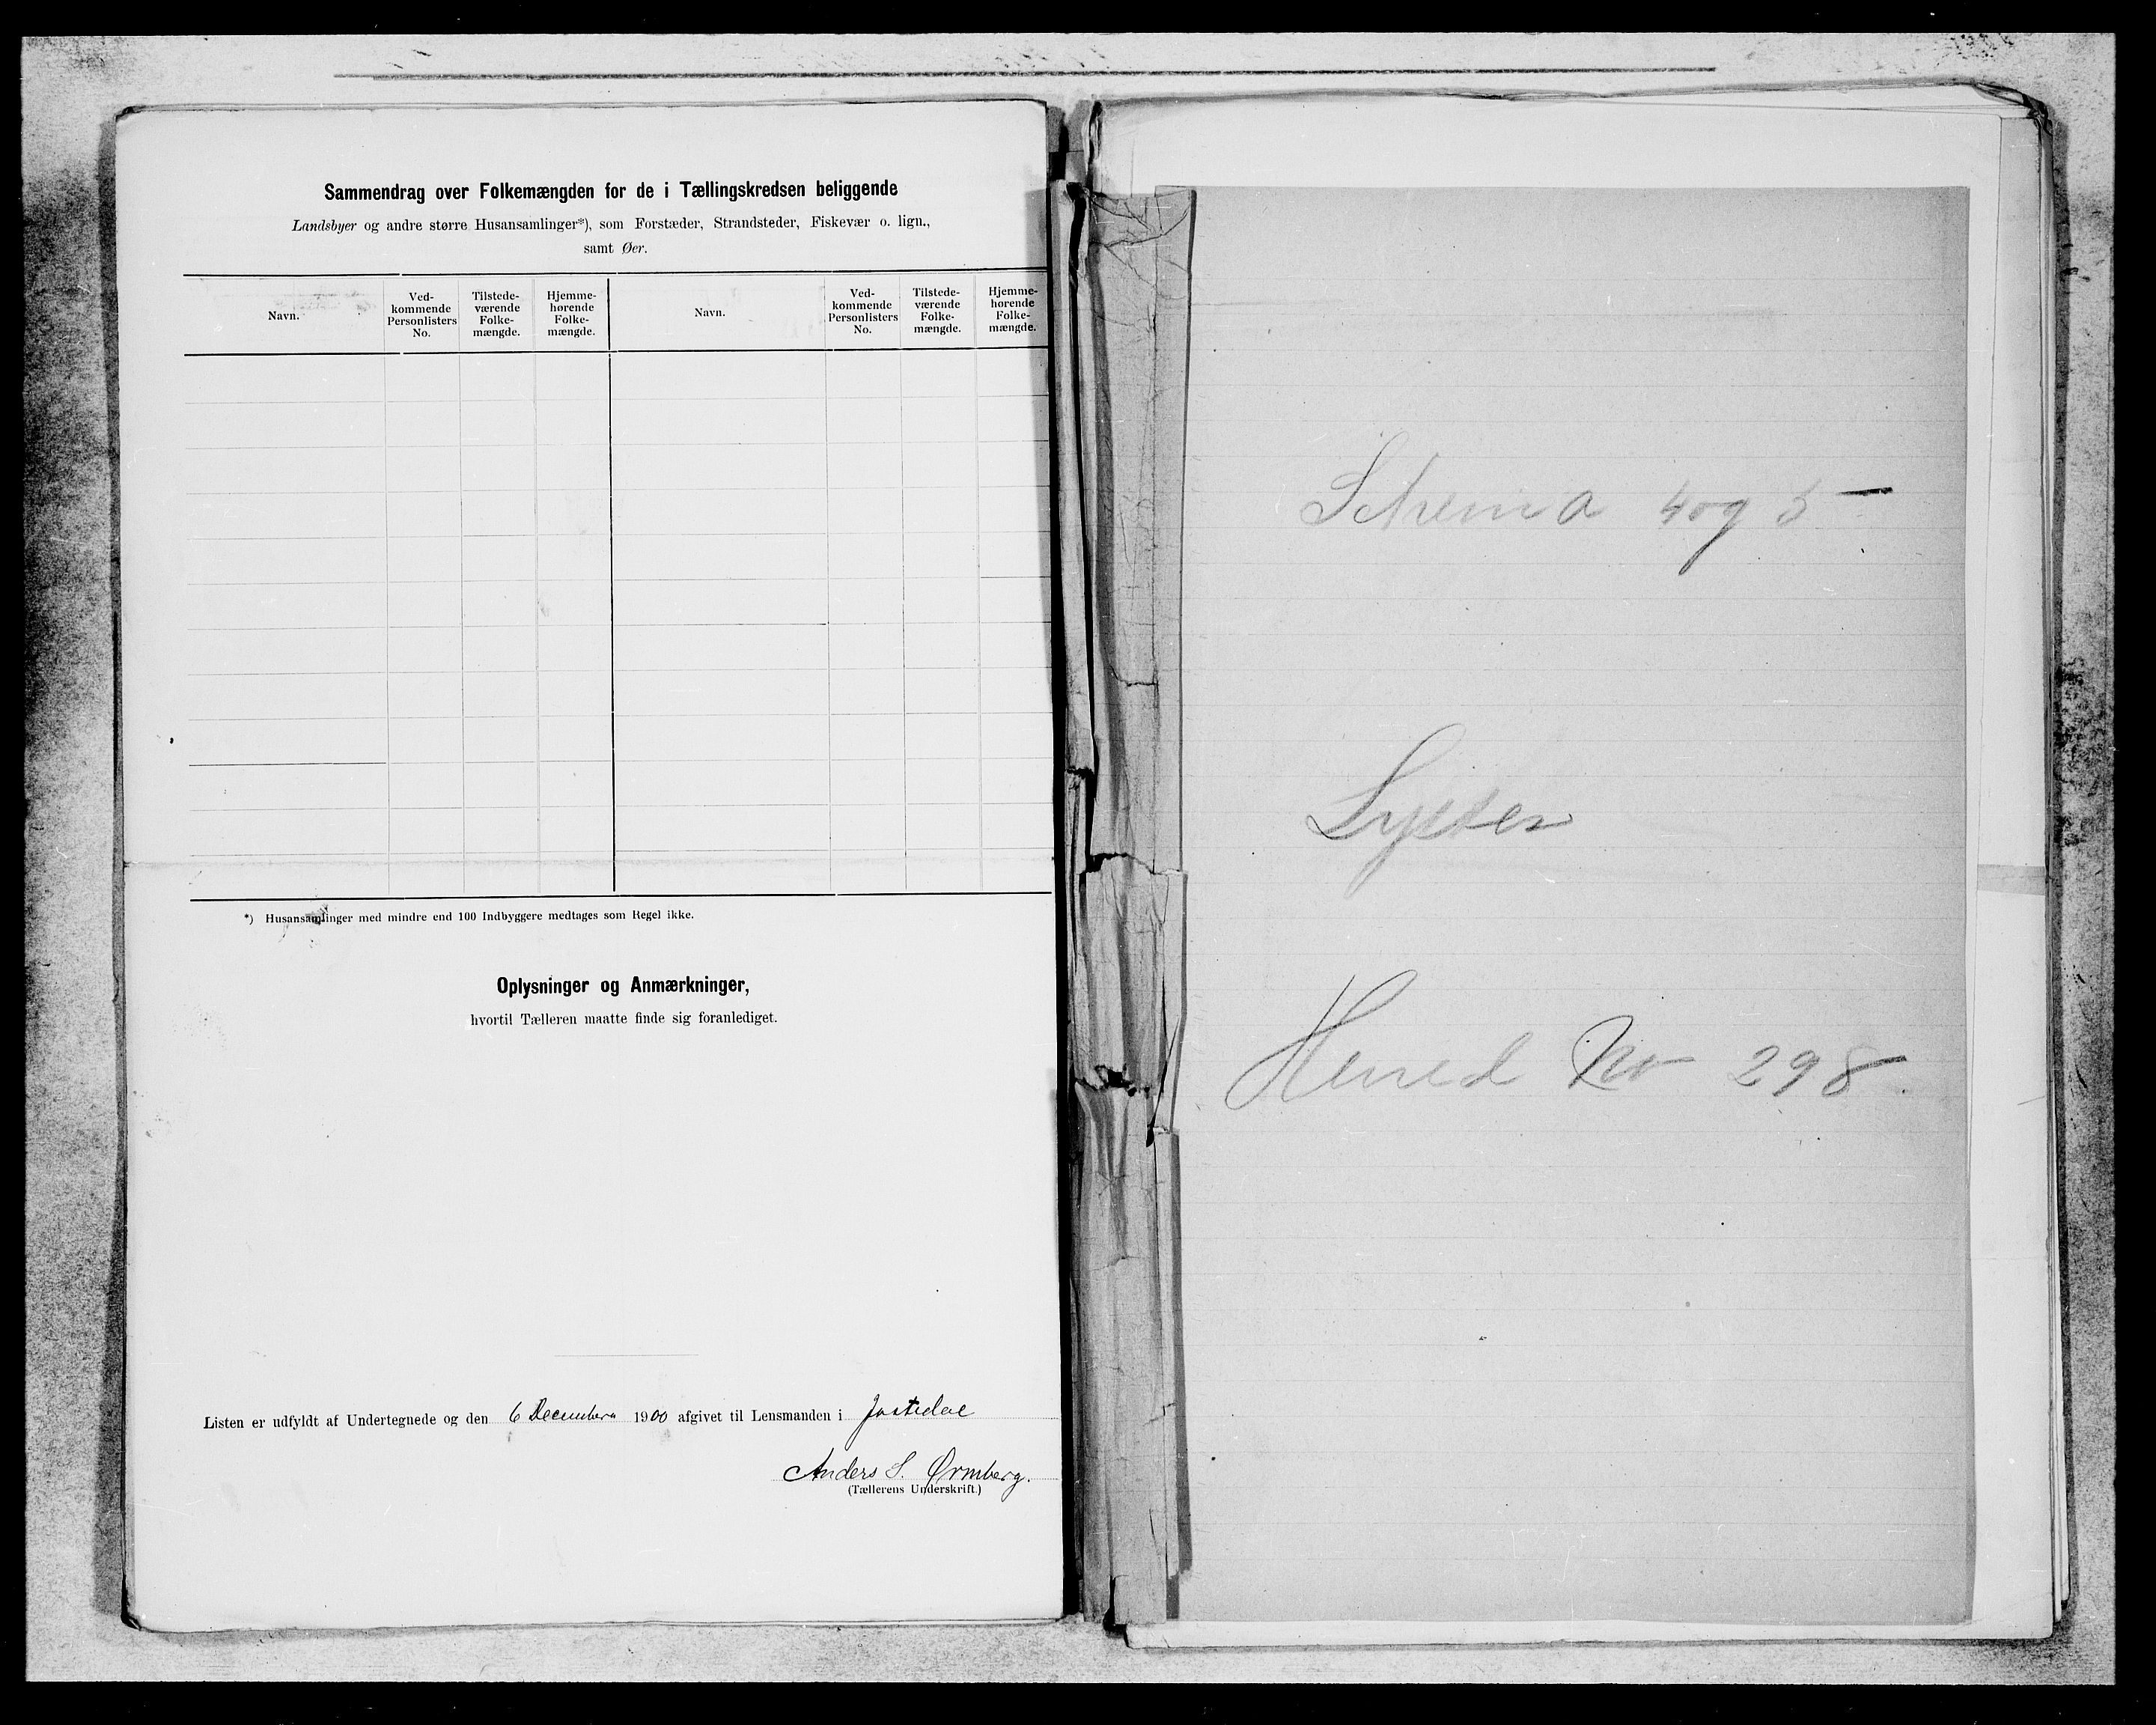 Sammendrag over Folkemængden for de i Tællingskredsen beliggende
Landsbyer og andre større Husansamlinger*), som Forstæder, Strandsteder, Fiskevær o. lign.,
samt Øer.
Navn.
Ved-
kommende
Personlisters
No.
Tilstede-
værende
Folke-
mængde.
Hjemme-
hørende
Folke-
mængde.
Navn.
Ved-
kommende
Personlisters
No.
Tilstede-
værende
Folke-
mængde.
Hjemme-
hørende
Folke-
mængde.
*) Husansamlinger med mindre end 100 Indbyggere medtages som Regel ikke.
Oplysninger og Anmærkninger,
hvortil Tælleren maatte finde sig foranlediget.
Listen er udfyldt af Undertegnede og den 6 December 1900 afgivet til Lensmanden i Jostedal
Anders S. Ørmberg.
(Tællerens Underskrift.)
Schema 4 og 5
Lyster
Herred No 298.